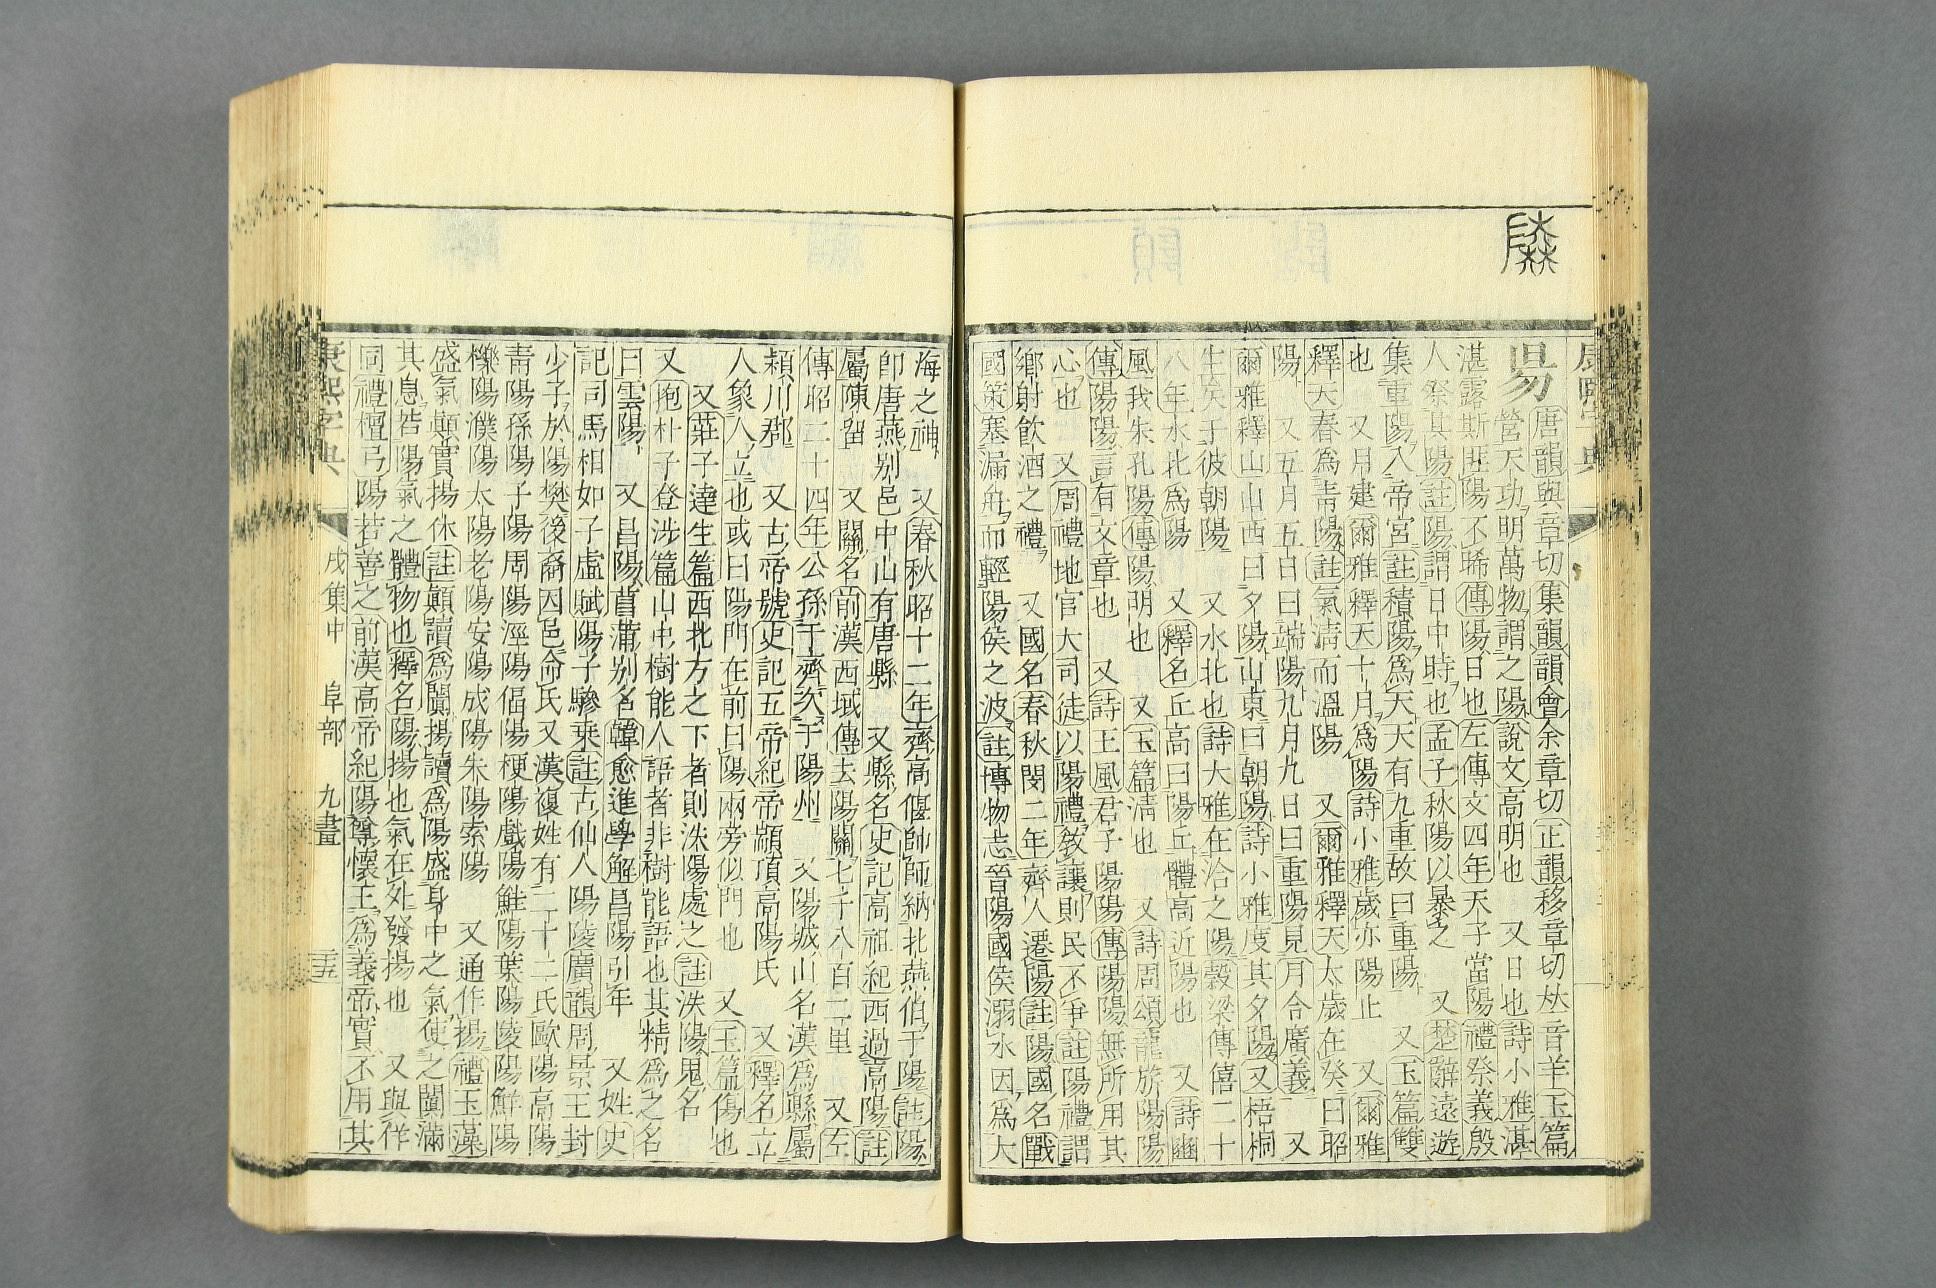 昜
唐韻與章切集韻韻會余章切正韻移章切𠀤音羊玉篇
營天功明萬物謂之陽說文高明也 又日也詩小雅湛
湛露斯匪陽不晞傳陽日也左傳文四年天子當陽禮祭義殷
人祭其陽註陽謂日中時也孟子秋陽以暴之 又楚辭遠遊
集重陽入帝宮註積陽爲天天有九重故曰重陽 又玉篇雙
也 又月建爾雅釋天十月爲陽詩小雅歲亦陽止 又爾雅
釋天春爲靑陽註氣淸而溫陽 又爾雅釋天太歲在癸曰昭
陽 又五月五日曰端陽九月九日曰重陽見月令廣義 又
爾雅釋山山西曰夕陽山東曰朝陽詩小雅度其夕陽又梧桐
生矣于彼朝陽 又水北也詩大雅在洽之陽穀梁傳僖二十
八年水北爲陽 又釋名丘高曰陽丘體高近陽也 又詩豳
風我朱孔陽傳陽明也 又玉篇淸也 又詩周頌龍旂陽陽
傳陽陽言有文章也 又詩王風君子陽陽傳陽陽無所用其
心也 又周禮地官大司徒以陽禮敎讓則民不爭註陽禮謂
鄕射飮酒之禮 又國名春秋閔二年齊人遷陽註陽國名戰
國策塞漏舟而輕陽侯之波註博物志晉陽國侯溺水因爲大
海之神 又春秋昭十二年齊高偃帥師納北燕伯于陽註陽
卽唐燕別邑中山有唐縣 又縣名史記高祖紀西過高陽註
屬陳留 又關名前漢西域傳去陽關七千八百二里 又左
傳昭二十四年公孫于齊次于陽州 又陽城山名漢爲縣屬
潁川郡 又古帝號史記五帝紀帝顓頊高陽氏 又釋名立
人象人立也或曰陽門在前曰陽兩旁似門也 又玉篇傷也
又莊子達生篇西北方之下者則泆陽處之註泆陽鬼名
又抱朴子登涉篇山中樹能人語者非樹能語也其精爲之名
曰雲陽 又昌陽菖蒲別名韓愈進學解昌陽引年 又姓史
記司馬相如子虛賦陽子驂乗註古仙人陽陵廣韻周景王封
少子於陽樊後裔因邑命氏又漢複姓有二十二氏歐陽高陽
靑陽孫陽子陽周陽涇陽偪陽梗陽戲陽鮭陽葉陽陵陽鮮陽
櫟陽濮陽太陽老陽安陽成陽朱陽索陽 又通作揚禮玉藻
盛氣顚實揚休註顚讀爲闐揚讀爲陽盛身中之氣使之闐滿
其息若陽氣之體物也釋名陽揚也氣在外發揚也 又與佯
同禮檀弓陽若善之前漢高帝紀陽尊懷王爲義帝實不用其
康熙字典 戌集中 阜部 九畫 三五